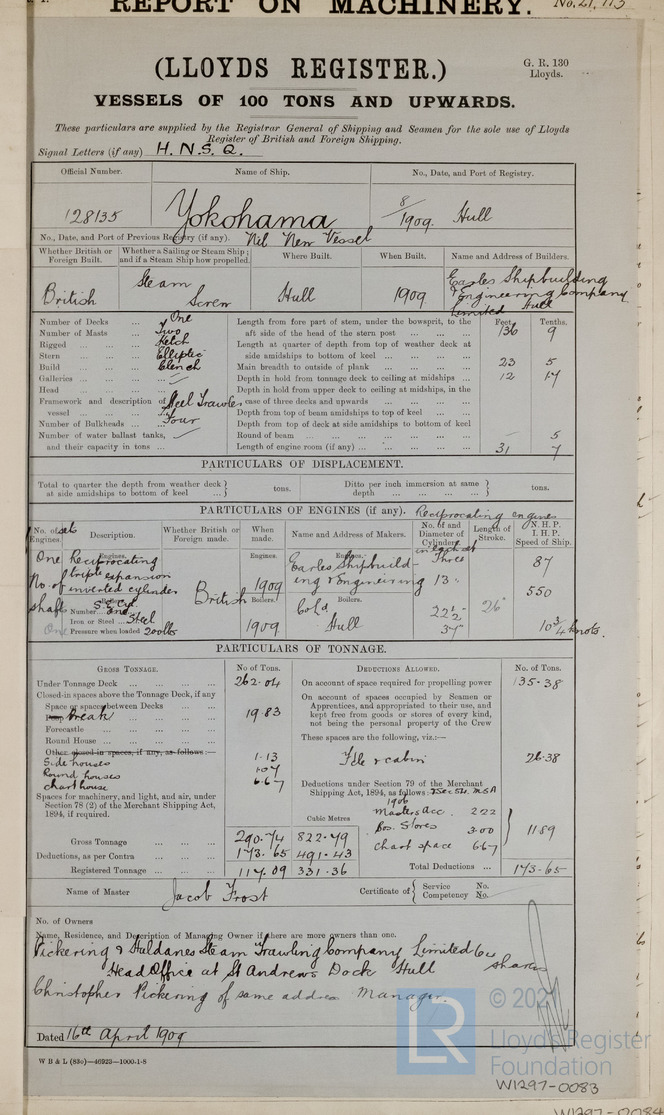 REPORT ON MACHINERY. No. 21,773
(LLOYDS REGISTER.)
G. R. 130
Lloyds.
VESSELS OF 100 TONS AND UPWARDS.
These particulars are supplied by the Registrar General of Shipping and Seamen for the sole use of Lloyds
Register of British and Foreign Shipping.
Signal Letters (if any) H. N. S. Q.
Official Number. Name of Ship. No., Date, and Port of Registry.
128135 Yokohama 8/1909. Hull
No., Date, and Port of Previous Registry (if any). Nil New Vessel
Whether British or Foreign Built. Whether a Sailing or Steam Ship; and if a Steam Ship how propelled. Where Built. When Built. Name and Address of Builders.
British Steam Screw Hull 1909 Earles Shipbuilding & Engineering Company Limited Hull
Feet Tenths.
Number of Decks ... One Length from fore part of stem, under the bowsprit, to the
Number of Masts ... Two aft side of the head of the stern post ... 136 9
Rigged ... Ketch Length at quarter of depth from top of weather deck at
Stern ... Elliptic side amidships to bottom of keel ...
Build ... Clench Main breadth to outside of plank ... 23 5
Galleries ... — Depth in hold from tonnage deck to ceiling at midships ... 12 17
Head ... Depth in hold from upper deck to ceiling at midships, in the
Framework and description of vessel ... Steel Trawler case of three decks and upwards ...
Depth from top of beam amidships to top of keel ...
Number of Bulkheads ... Four Depth from top of deck at side amidships to bottom of keel
Number of water ballast tanks, — Round of beam ... — 5
and their capacity in tons ... Length of engine room (if any) ... 31 7
PARTICULARS OF DISPLACEMENT.
Total to quarter the depth from weather deck at side amidships to bottom of keel ... tons. Ditto per inch immersion at same depth ... tons.
PARTICULARS OF ENGINES (if any). Reciprocating engines
No. of sets Engines. Description. Whether British or Foreign made. When made. Name and Address of Makers. No. of and Diameter of Cylinders in each set Length of Stroke. N. H. P. I. H. P. Speed of Ship.
Engines. Engines. Engines.
One Reciprocating triple expansion inverted cylinder British 1909 Earles Shipbuilding & Engineering Three 13" 87
No. of shafts One
Number ... One
Iron or Steel ... Steel
Pressure when loaded 200 lbs
Boilers. Boilers.
1909 Cold Hull 22½" 37" 26" 550 10¾ knots.
PARTICULARS OF TONNAGE.
GROSS TONNAGE. No of Tons. DEDUCTIONS ALLOWED. No. of Tons.
Under Tonnage Deck ... 262.04 On account of space required for propelling power 135.38
Closed-in spaces above the Tonnage Deck, if any
Space or spaces between Decks ...
Poop Break ... 19.83
Forecastle ...
Round House ...
Other closed-in spaces, if any, as follows:—
Side houses 1.13
Round houses 1.07
Chart house 6.67
Spaces for machinery, and light, and air, under
Section 78 (2) of the Merchant Shipping Act,
1894, if required.
On account of spaces occupied by Seamen or
Apprentices, and appropriated to their use, and
kept free from goods or stores of every kind,
not being the personal property of the Crew
These spaces are the following, viz.:—
Fdle & cabin 26.38
Deductions under Section 79 of the Merchant
Shipping Act, 1894, as follows: & Sec 54 MSA
1906
Masters Acc. 2.22
Bos. Stores 3.00
Chart space 6.67
11.89
Cubic Metres
Gross Tonnage ... 290.74 822.79
Deductions, as per Contra ... 173.65 491.43
Registered Tonnage ... 117.09 331.36
Total Deductions ... 173.65
Name of Master Jacob Frost Certificate of Service No. Competency No.
No. of Owners
Name, Residence, and Description of Managing Owner if there are more owners than one.
Pickering & Haldanes Steam Trawling Company Limited 64
Head Office at St Andrews Dock Hull shares
Christopher Pickering of same address Manager.
Dated 16th April 1909
W B & L (83o)—46923—1000-1-8
LR
© 2021
Lloyd's Register
Foundation
W1297-0083
W1297-0084